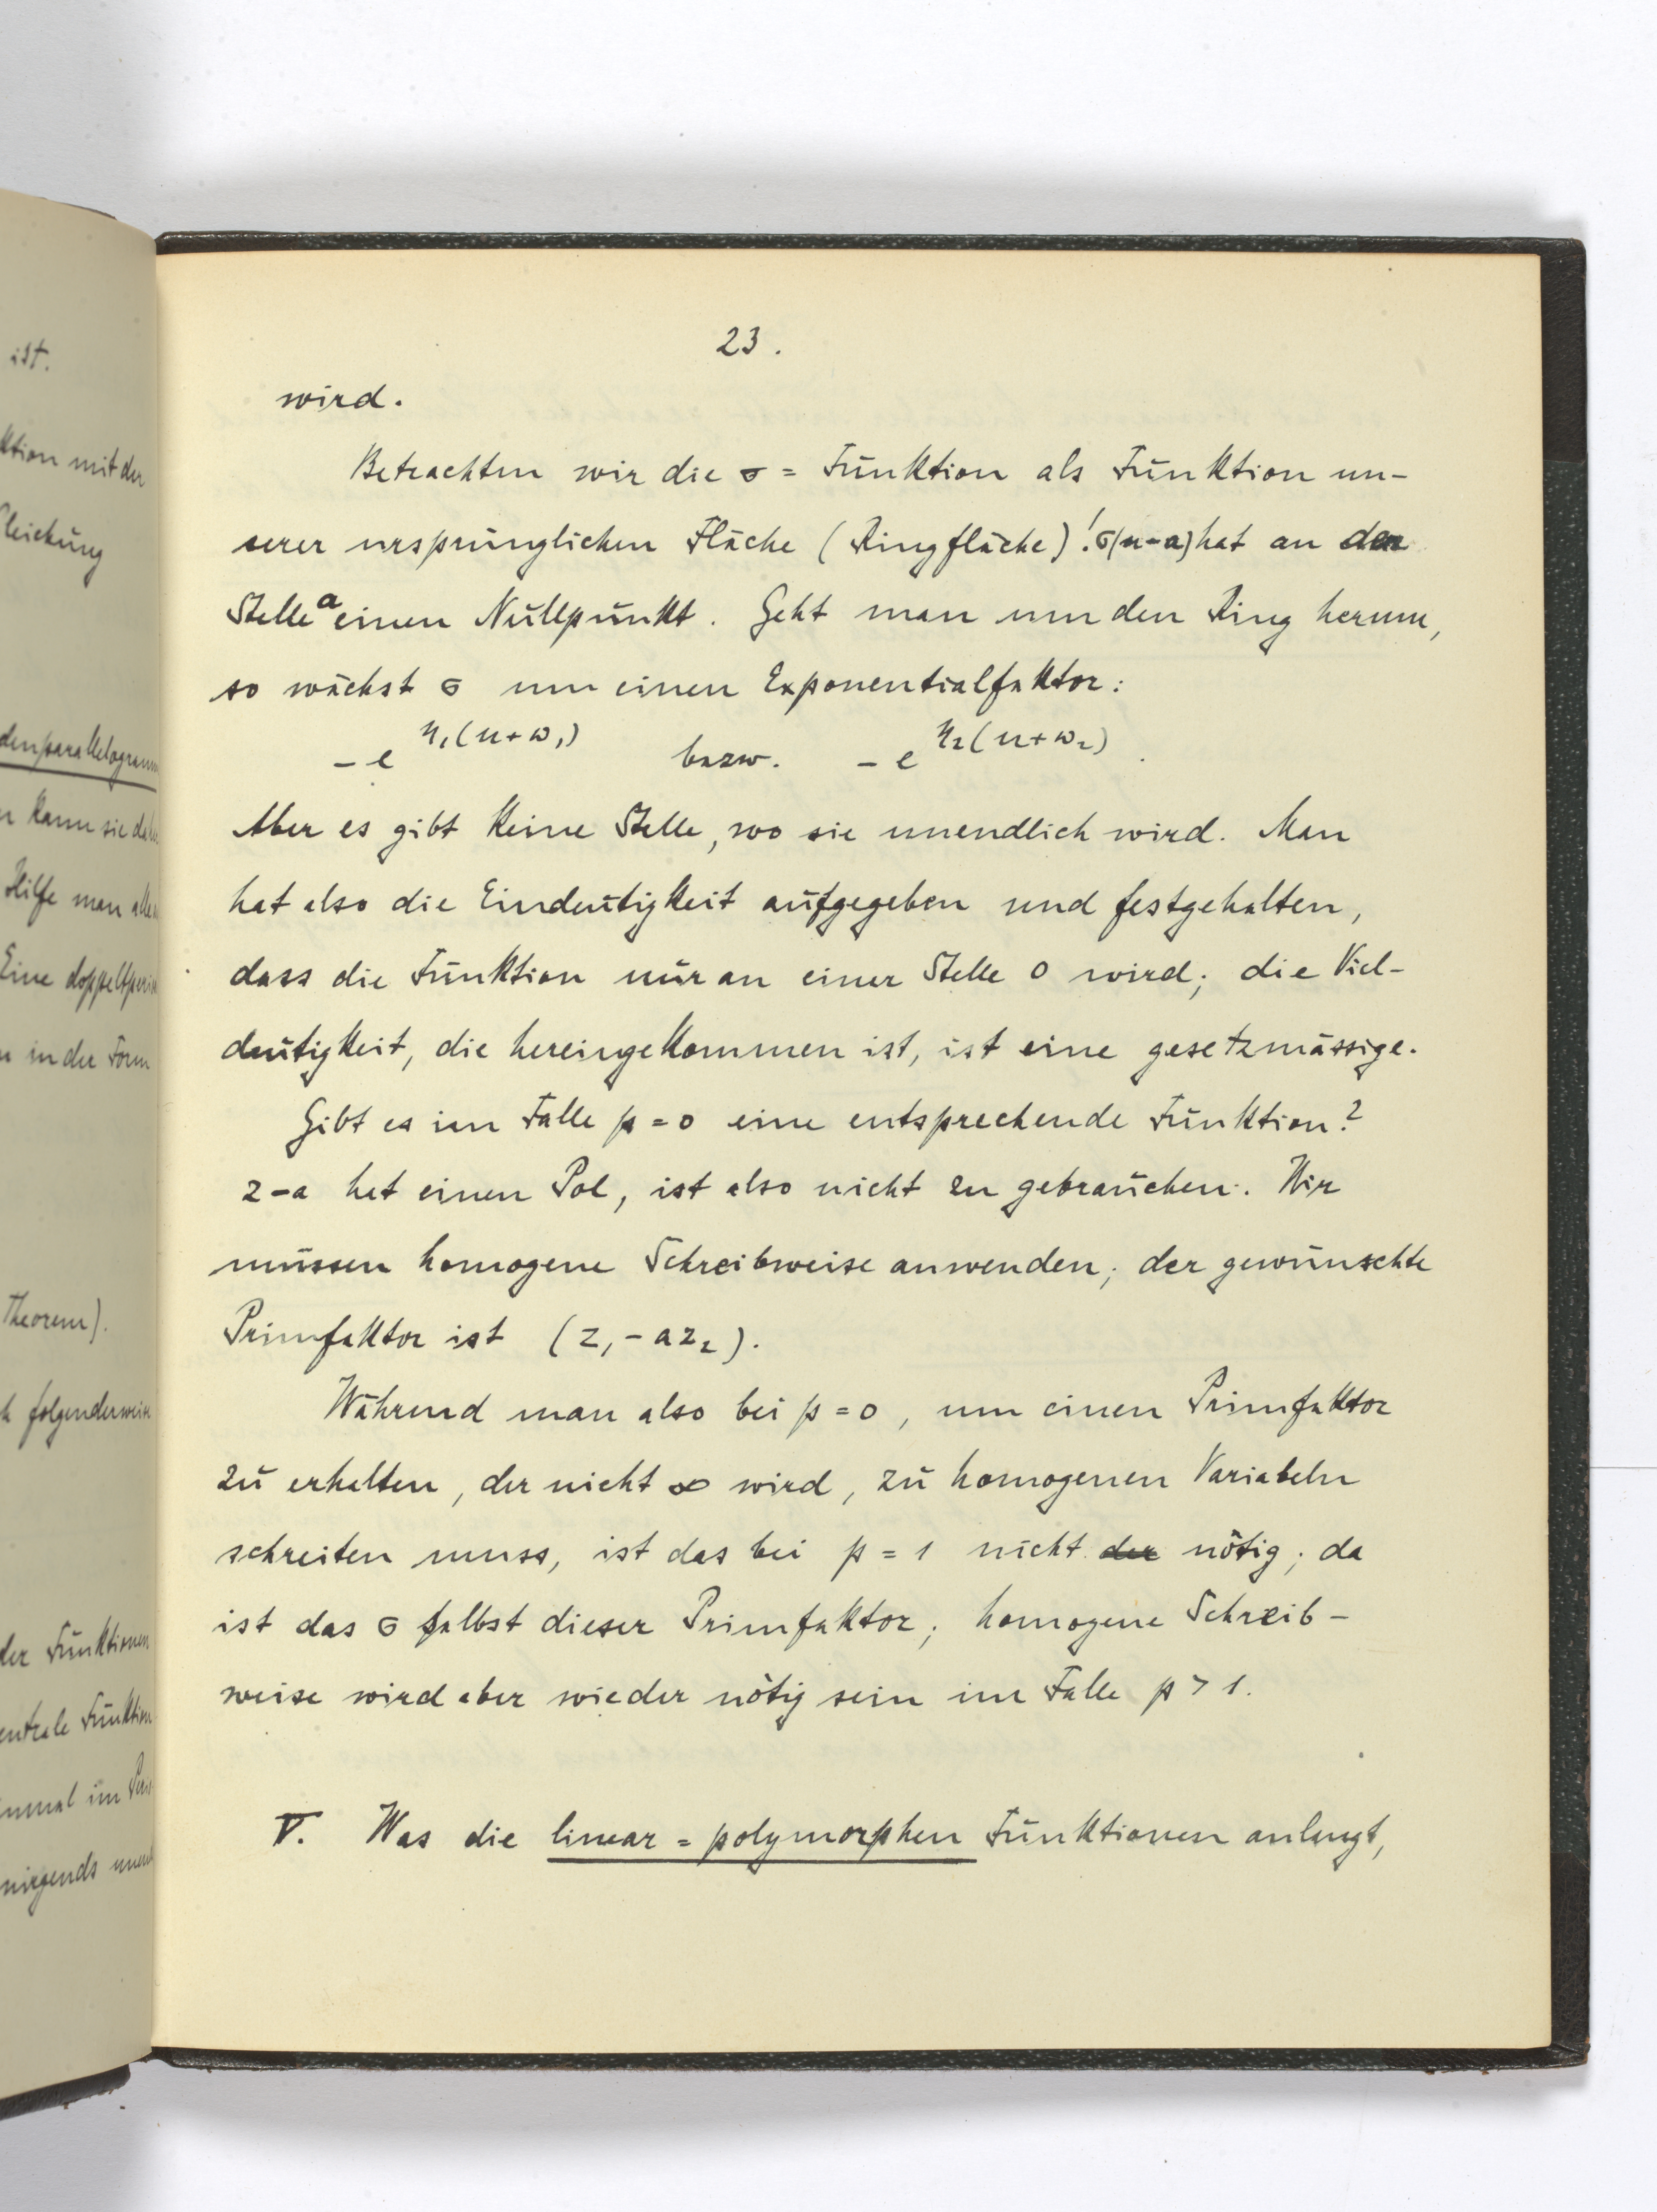 ist.
ktion mit der
Gleichung
denparallelogramm
kann sie
Hilfe man
Eine
in der Form
Theorem).
folgenderweise
der Funktionen
Funktion
nirgends
23.
wird.
Betrachten wir die σ = Funktion als Funktion un-
serer ursprünglichen Fläche (Ringfläche)! σ(u-a) hat an der
Stelle a einen Nullpunkt. Geht man um den Ring herum,
so wächst σ um einen Exponentialfaktor:
- e^{η₁(u+ω₁)} bezw. - e^{η₂(u+ω₂)}.
Aber es gibt keine Stelle, wo sie unendlich wird. Man
hat also die Eindeutigkeit aufgegeben und festgehalten,
dass die Funktion nur an einer Stelle 0 wird; die Viel-
deutigkeit, die hereingekommen ist, ist eine gesetzmässige.
Gibt es im Falle p = 0 eine entsprechende Funktion?
z-a hat einen Pol, ist also nicht zu gebrauchen. Wir
müssen homogene Schreibweise anwenden; der gewünschte
Primfaktor ist (z₁ - az₂).
Während man also bei p = 0, um einen Primfaktor
zu erhalten, der nicht ∞ wird, zu homogenen Variabeln
schreiten muss, ist das bei p = 1 nicht der nötig; da
ist das σ selbst dieser Primfaktor; homogene Schreib-
weise wird aber wieder nötig sein im Falle p > 1.
V. Was die linear = polymorphen Funktionen anlangt,